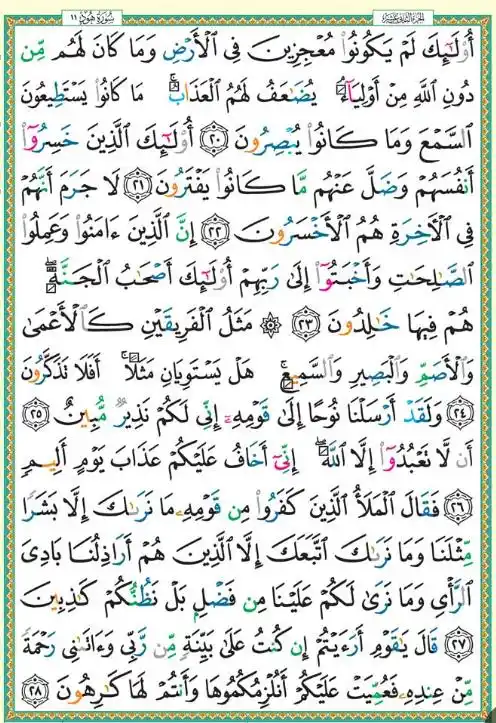 سُورَةُ هُودٍ ١١
أُوْلَٰٓئِكَ لَمْ يَكُونُواْ مُعْجِزِينَ فِي ٱلْأَرْضِ وَمَا كَانَ لَهُم مِّن
دُونِ ٱللَّهِ مِنْ أَوْلِيَآءَۘ يُضَٰعَفُ لَهُمُ ٱلْعَذَابُۚ مَا كَانُواْ يَسْتَطِيعُونَ
ٱلسَّمْعَ وَمَا كَانُواْ يُبْصِرُونَ ٢٠ أُوْلَٰٓئِكَ ٱلَّذِينَ خَسِرُوٓاْ
أَنفُسَهُمْ وَضَلَّ عَنْهُم مَّا كَانُواْ يَفْتَرُونَ ٢١ لَا جَرَمَ أَنَّهُمْ
فِي ٱلْأٓخِرَةِ هُمُ ٱلْأَخْسَرُونَ ٢٢ إِنَّ ٱلَّذِينَ ءَامَنُواْ وَعَمِلُواْ
ٱلصَّٰلِحَٰتِ وَأَخْبَتُوٓاْ إِلَىٰ رَبِّهِمْ أُوْلَٰٓئِكَ أَصْحَٰبُ ٱلْجَنَّةِۖ
هُمْ فِيهَا خَٰلِدُونَ ٢٣ ۞ مَثَلُ ٱلْفَرِيقَيْنِ كَٱلْأَعْمَىٰ
وَٱلْأَصَمِّ وَٱلْبَصِيرِ وَٱلسَّمِيعِۚ هَلْ يَسْتَوِيَانِ مَثَلًاۚ أَفَلَا تَذَكَّرُونَ
٢٤ وَلَقَدْ أَرْسَلْنَا نُوحًا إِلَىٰ قَوْمِهِۦٓ إِنِّي لَكُمْ نَذِيرٌ مُّبِينٌ ٢٥
أَن لَّا تَعْبُدُوٓاْ إِلَّا ٱللَّهَۖ إِنِّيٓ أَخَافُ عَلَيْكُمْ عَذَابَ يَوْمٍ أَلِيمٍ
٢٦ فَقَالَ ٱلْمَلَأُ ٱلَّذِينَ كَفَرُواْ مِن قَوْمِهِۦ مَا نَرَىٰكَ إِلَّا بَشَرًا
مِّثْلَنَا وَمَا نَرَىٰكَ ٱتَّبَعَكَ إِلَّا ٱلَّذِينَ هُمْ أَرَاذِلُنَا بَادِيَ
ٱلرَّأْيِ وَمَا نَرَىٰ لَكُمْ عَلَيْنَا مِن فَضْلِۭ بَلْ نَظُنُّكُمْ كَٰذِبِينَ
٢٧ قَالَ يَٰقَوْمِ أَرَءَيْتُمْ إِن كُنتُ عَلَىٰ بَيِّنَةٍ مِّن رَّبِّي وَءَاتَىٰنِي رَحْمَةً
مِّنْ عِندِهِۦ فَعُمِّيَتْ عَلَيْكُمْ أَنُلْزِمُكُمُوهَا وَأَنتُمْ لَهَا كَٰرِهُونَ ٢٨